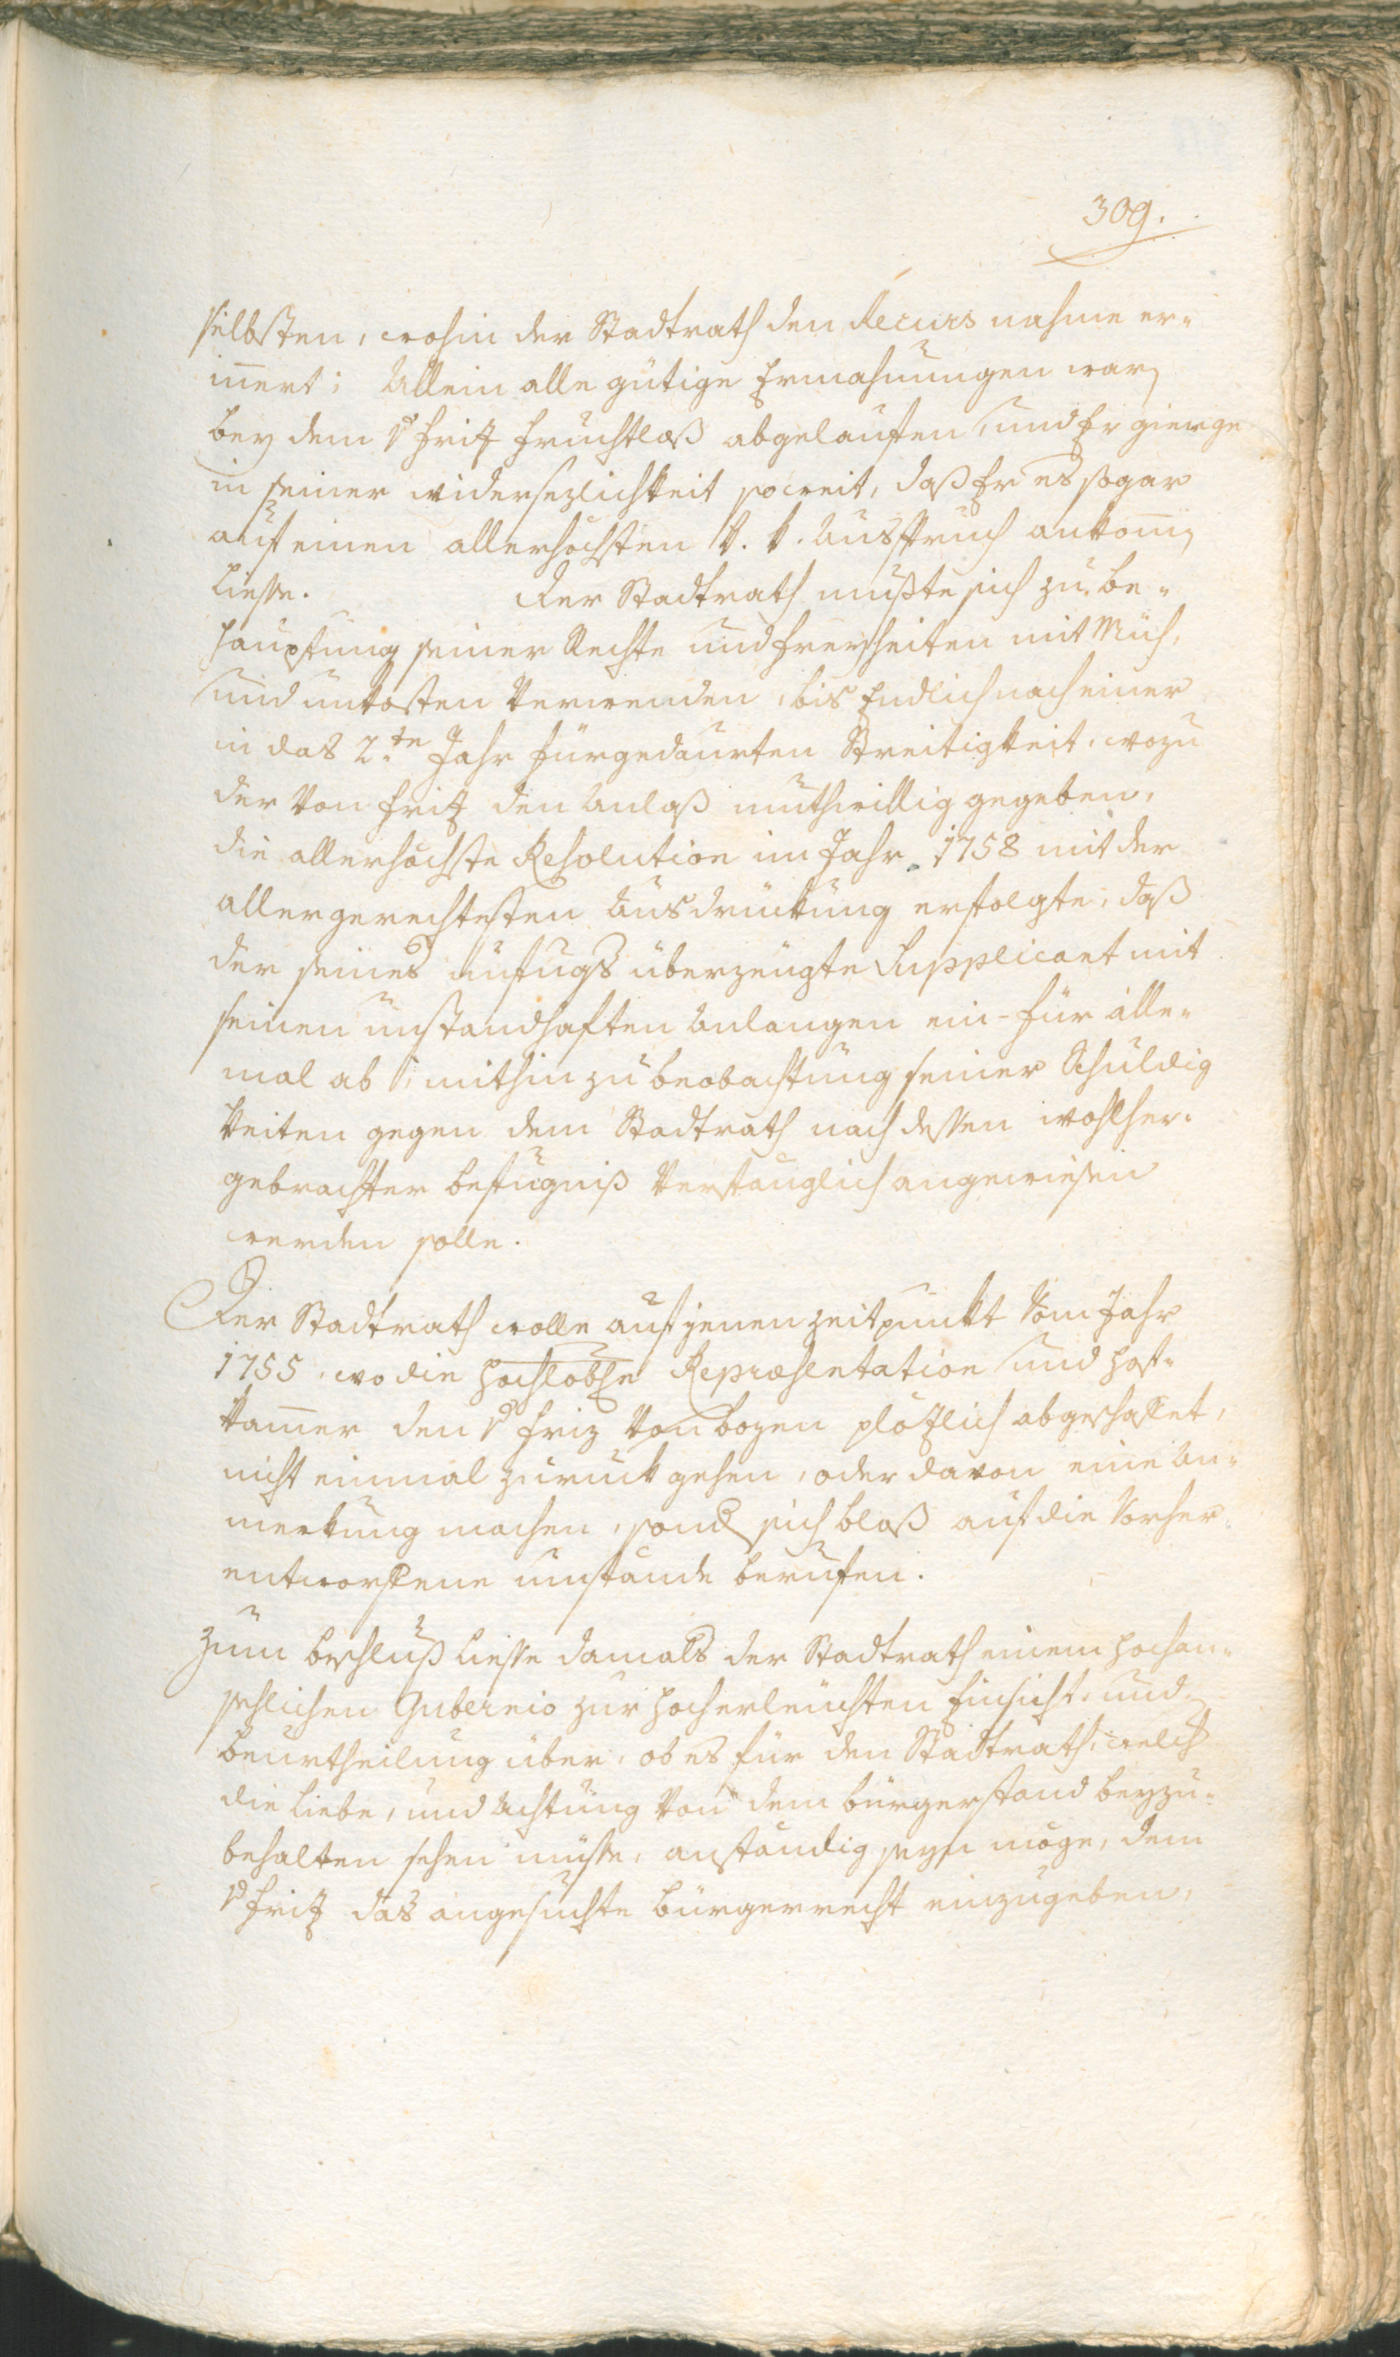 309.
selbsten, wohin der Stadtrath den Recurs nahme er-
innert: Allein alle gütige Ermahnungen war
bey dem v Fritz fruchtloß abgelaufen, und Er gienge
in seiner widersezlichkeit so weit, daß Er es sogar
auf einen allerhöchsten k. k. Ausspruch ankom
liesse. Der Stadtrath mußte sich zu be-
hauptung seiner Rechte und freyheiten mit Müh,
und unkosten verwenden, bis Endlich nach einer
in das 2.te Jahr fürgedaurten Streitigkeit, wozu
der von Fritz den Anlaß muthwillig gegeben,
die allerhöchste Resolution im Jahr 1758 mit der
allergerechtesten Ausdruckung erfolgte, daß
der seines unfugs überzeugte Supplicant mit
seinen unstandhaften Anlangen ein-für alle-
mal ab, mithin zu beobachtung seiner Schuldig
keiten gegen dem Stadtrath nach dessen wohlher-
gebrachter befugniß verfänglich angewiesen
werden solle.
Der Stadtrath wolle auf jenen Zeitpunkt vom Jahr
1755, wo die hochlobe Repræsentation und Hof-
kammer den v Friz von bozen plözlich abgeschaffet,
nicht einmal zuruck gehen, oder davon eine An-
merkung machen, sond sich bloß auf die vorher
entworfene umstände berufen.
Zum beschluß liesse damals der Stadtrath einem hochan-
sehlichen Gubernio zur hocherleuchten Einsicht, und
beurtheilung über, ob es für den Stadtrath, welch
die liebe, und Achtung von dem bürgerstand beyzu-
behalten sehen müsse, anständig seyn möge, dem
v Fritz das angesuchte bürgerrecht einzugeben,